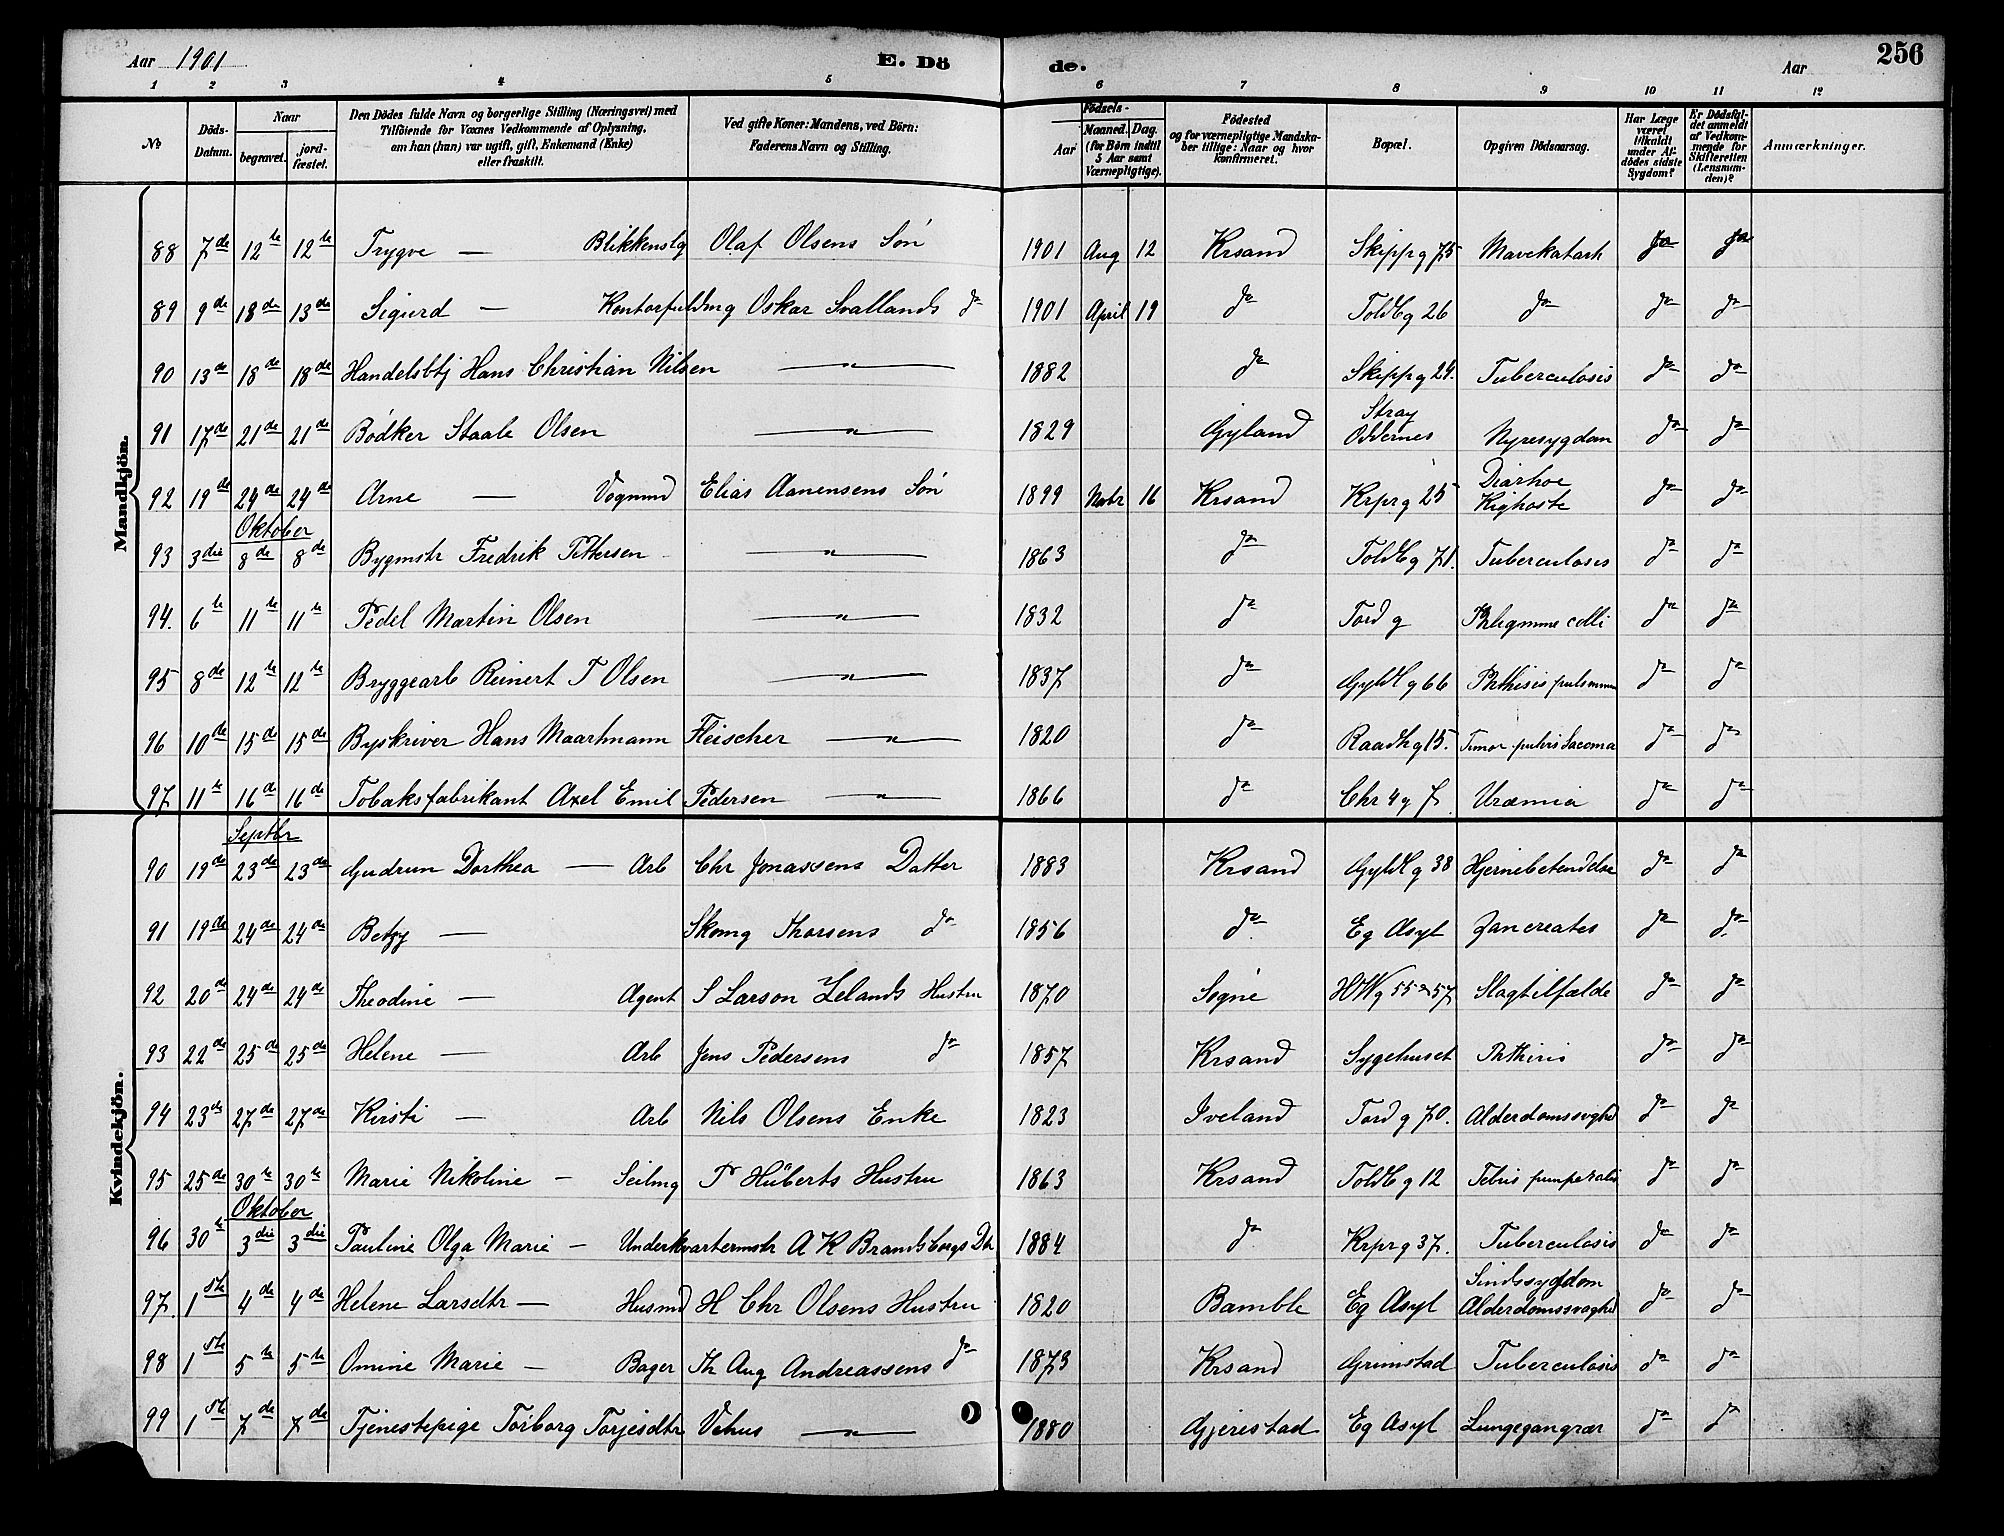 Aar 1901
E. Dö
de.
Aar
256
1 2 3 4 5 6 7 8 9 10 11 12
No
Döds-Datum.
Naar
begravet.
jord-fæstet.
Den Dödes fulde Navn og borgerlige Stilling (Næringsvei) med
Tilföiende for Voxnes Vedkommende af Oplysning,
om han (hun) var ugift, gift, Enkemand (Enke)
eller fraskilt.
Ved gifte Koner: Mandens, ved Börn:
Faderens Navn og Stilling.
Födsels-
Aar
Maaned. Dag.
(for Börn indtil
5 Aar samt
Værnepligtige).
Födested
og for værnepligtige Mandska-
ber tillige: Naar og hvor
konfirmeret.
Bopæl.
Opgiven Dödsaarsag.
Har Læge
været
tilkaldt
under Af-
dödes sidste
Sygdom?
Er Dödsfal-
det anmeldt
af Vedkom-
mende for
Skifteretten
(Lensman-
den)?
Anmærkninger.
Mandkjön.
88 7de 12te 12te Trygve — Blikkenslg Olaf Olsens Sön 1901 Aug 12 Krsand Skippg 75 Mavekatarh Ja Ja
89 9de 18de 13de Sigurd — Kontorfuldmg Oskar Svallands do 1901 April 19 do Toldbg 26 do do do
90 13de 18de 18de Handelsbtj Hans Christian Nilsen — " — 1882 do Skippg 24. Tuberculosis do do
91 17de 21de 21de Bödker Staale Olsen — " — 1829 Gyland Stray Oddernes Nyresygdom do do
92 19de 24de 24de Arne — Vognmd Elias Aanensens Sön 1899 Novbr 16 Krsand Krprg 25 Diarhoe Kighoste do do
Oktober
93 3die 8de 8de Bygmstr Fredrik Pettersen — " — 1863 do Toldbg 71. Tuberculosis do do
94. 6te 11te 11te Pedel Martin Olsen — " — 1832 do Tord g Phlegmme colli do do
95 8de 12te 12te Bryggearb Reinert T Olsen — " — 1837 do Gyldl g 66 Phthisis pulmonum do do
96 10de 15de 15de Byskriver Hans Maartmann Fleischer — " — 1820 do Raadhg 15. do do
97 11te 16de 16de Tobaksfabrikant Axel Emil Pedersen — " — 1866 do Chr 4 g 7. Uræmia do do
Kvindekjön.
Septbr
90 19de 23de 23de Gudrun Dorthea — Arb Chr Jonassens Datter 1883 Krsand Gyldl g 38 Hjernebetendelse do do
91 19de 24de 24de Betzy — Skomg Thorsens do 1856 do Eg Asyl do do
92 20de 24de 24de Theodine — Agent S Larson Lelands Hustru 1870 Sögne HWg 55 & 57 Slagtilfælde do do
93 22de 25de 25de Helene — Arb Jens Pedersens do 1857 Krsand Sygehuset Phthisis do do
94 23de 27de 27de Kirsti — Arb Nils Olsens Enke 1823 Iveland Tord g 70. Alderdomssvaghed do do
95 25de 30te 30te Marie Nikoline — Seilmg P Hüberts Hustru 1863 Krsand Toldbg 12 Febris puerperalis do do
Oktober
96 30te 3die 3die Pauline Olga Marie — Underkvartermstr A K Brandsborgs Dtr 1884 do Krprg 37. Tuberculosis do do
97. 1ste 4de 4de Helene Larsdtr — Husmd H Chr Olsens Hustru 1820 Bamble Eg Asyl Sindssygdom Alderdomssvaghed do do
98 1ste 5te 5te Omine Marie — Bager Th Aug Andreassens do 1873 Krsand Grimstad Tuberculosis do do
99 1ste 7de 7de Tjenestepige Torborg Torjesdtr Vehus — " — 1880 Gjerestad Eg Asyl Lungegangræn do do